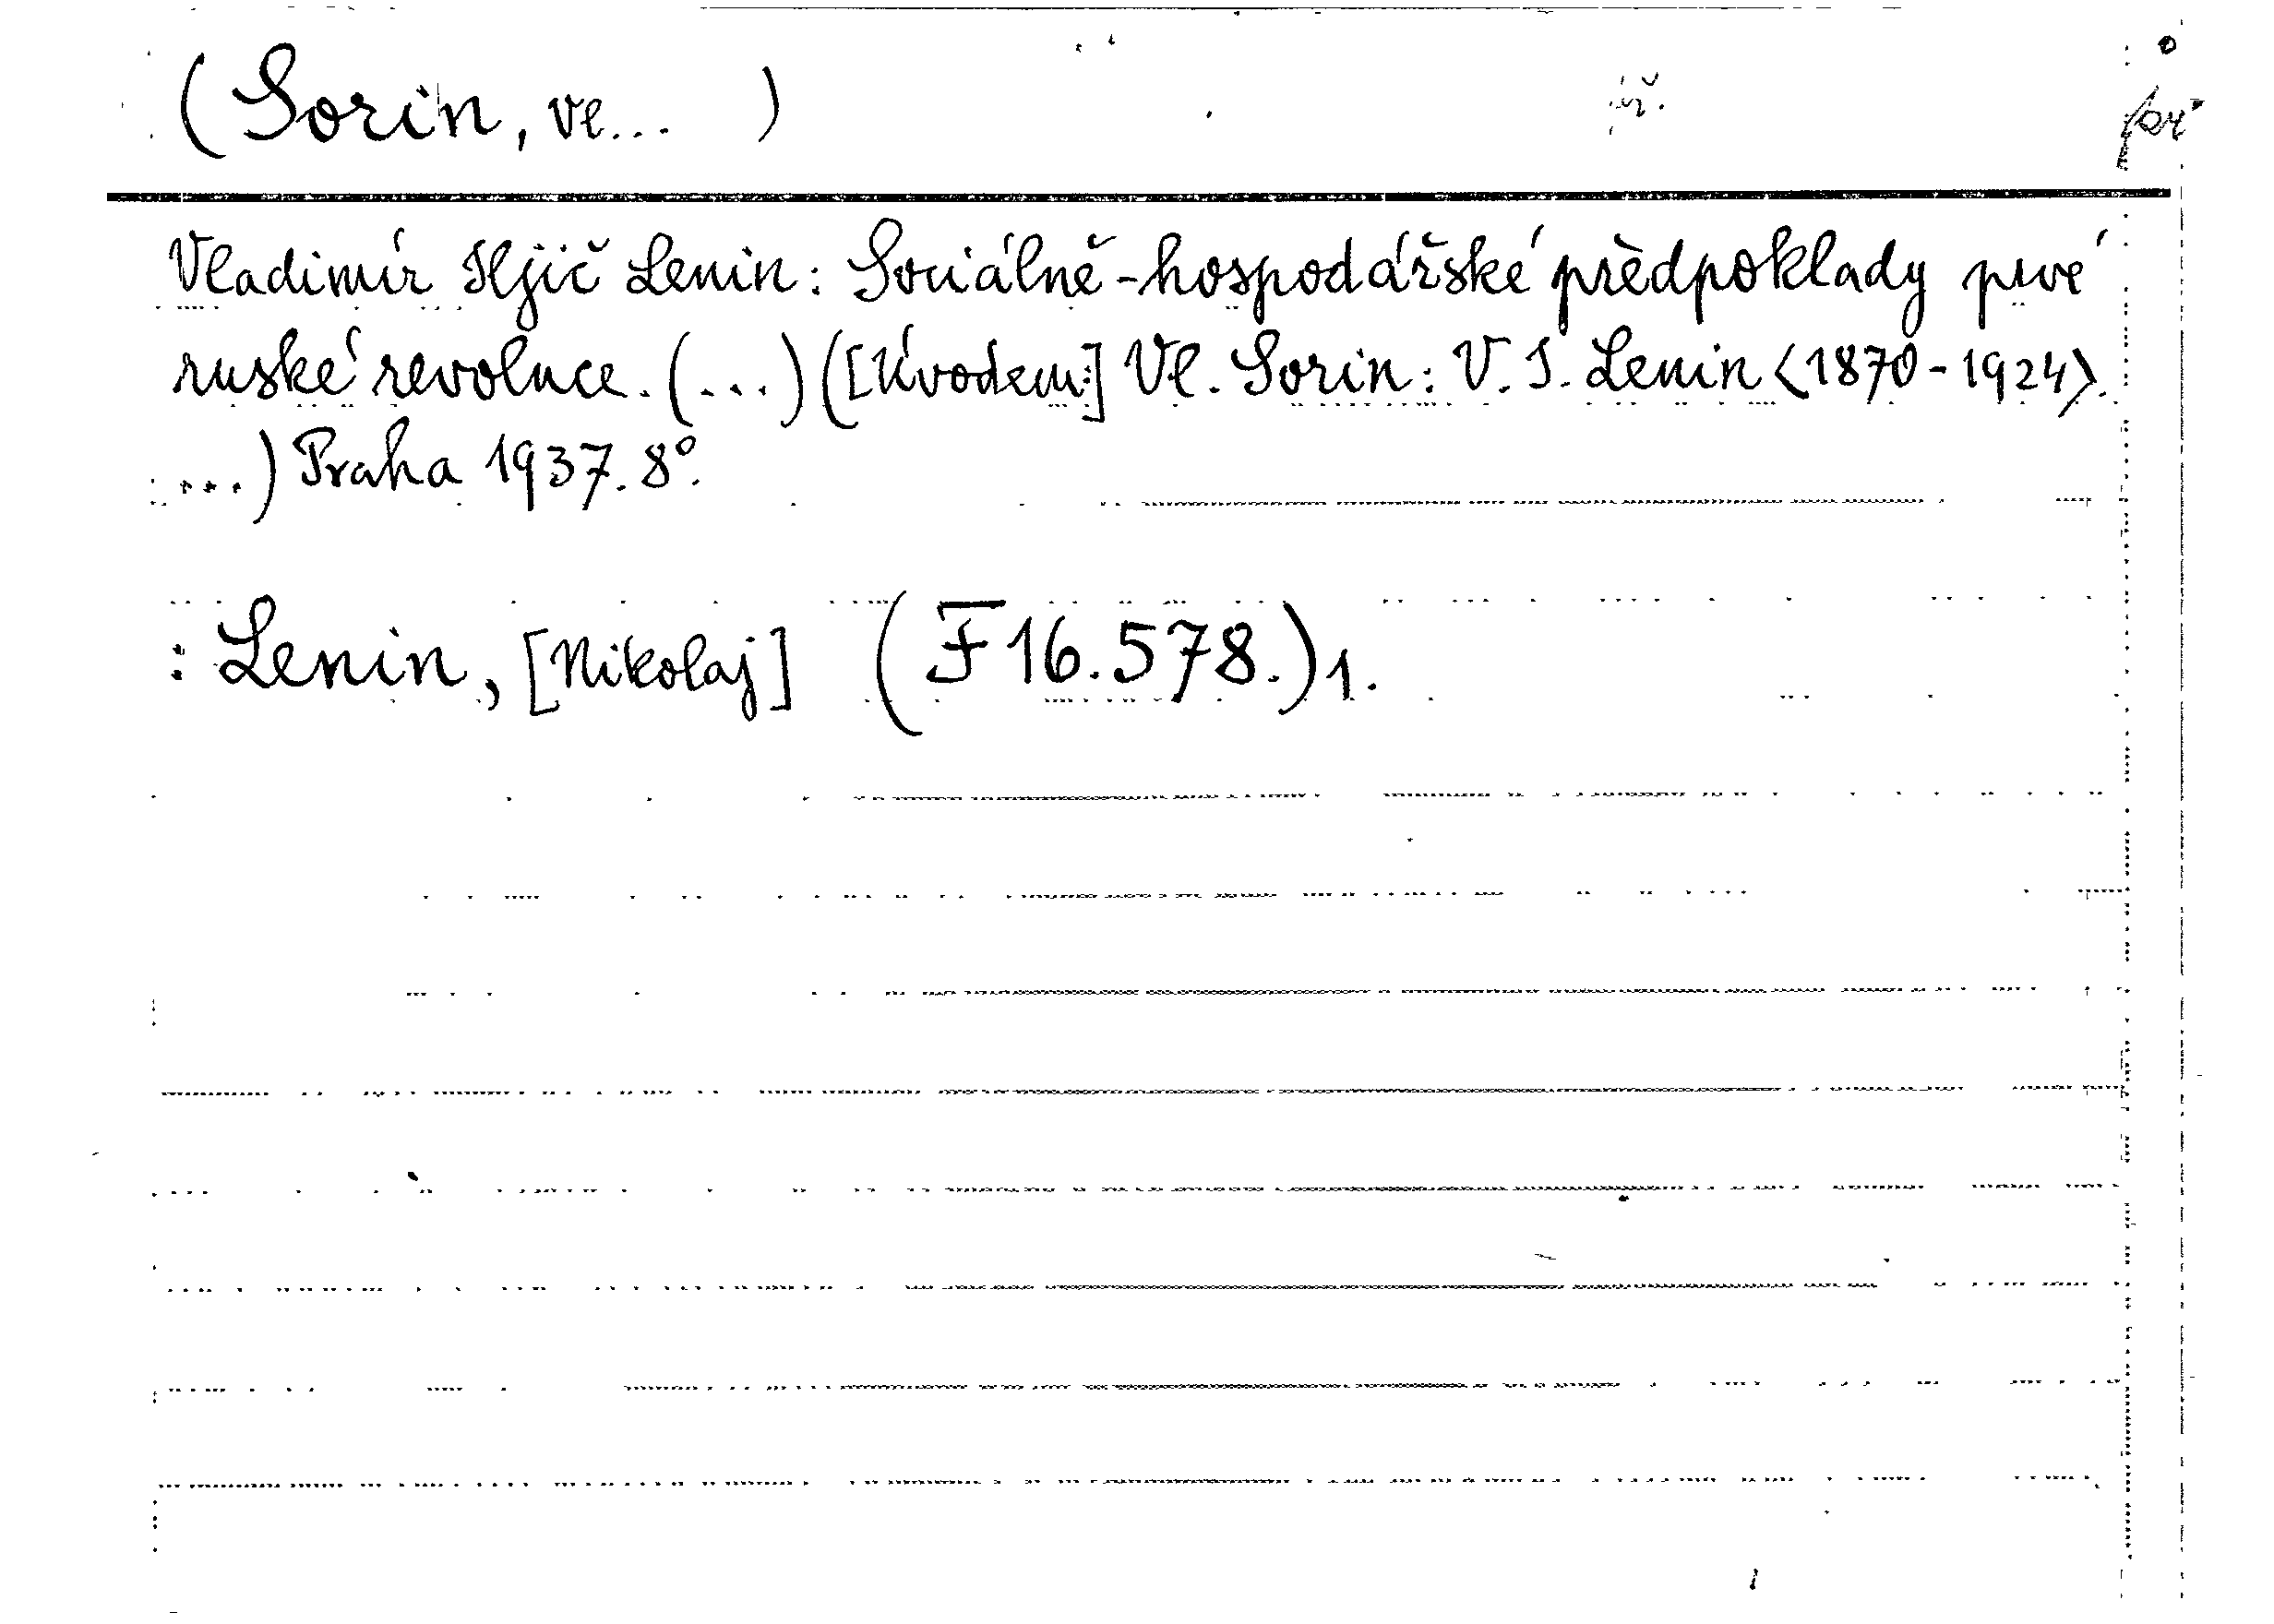 (Sorin, Vl... )
Vladimír Iljič Lenin: Sociálně-hospodářské předpoklady prvé
ruské revoluce. (...) ([Úvodem:] Vl. Sorin: V. I. Lenin <1870-1924>.
...) Praha 1937. 8°.
: Lenin, [Nikolaj] (F 16.578.) 1.